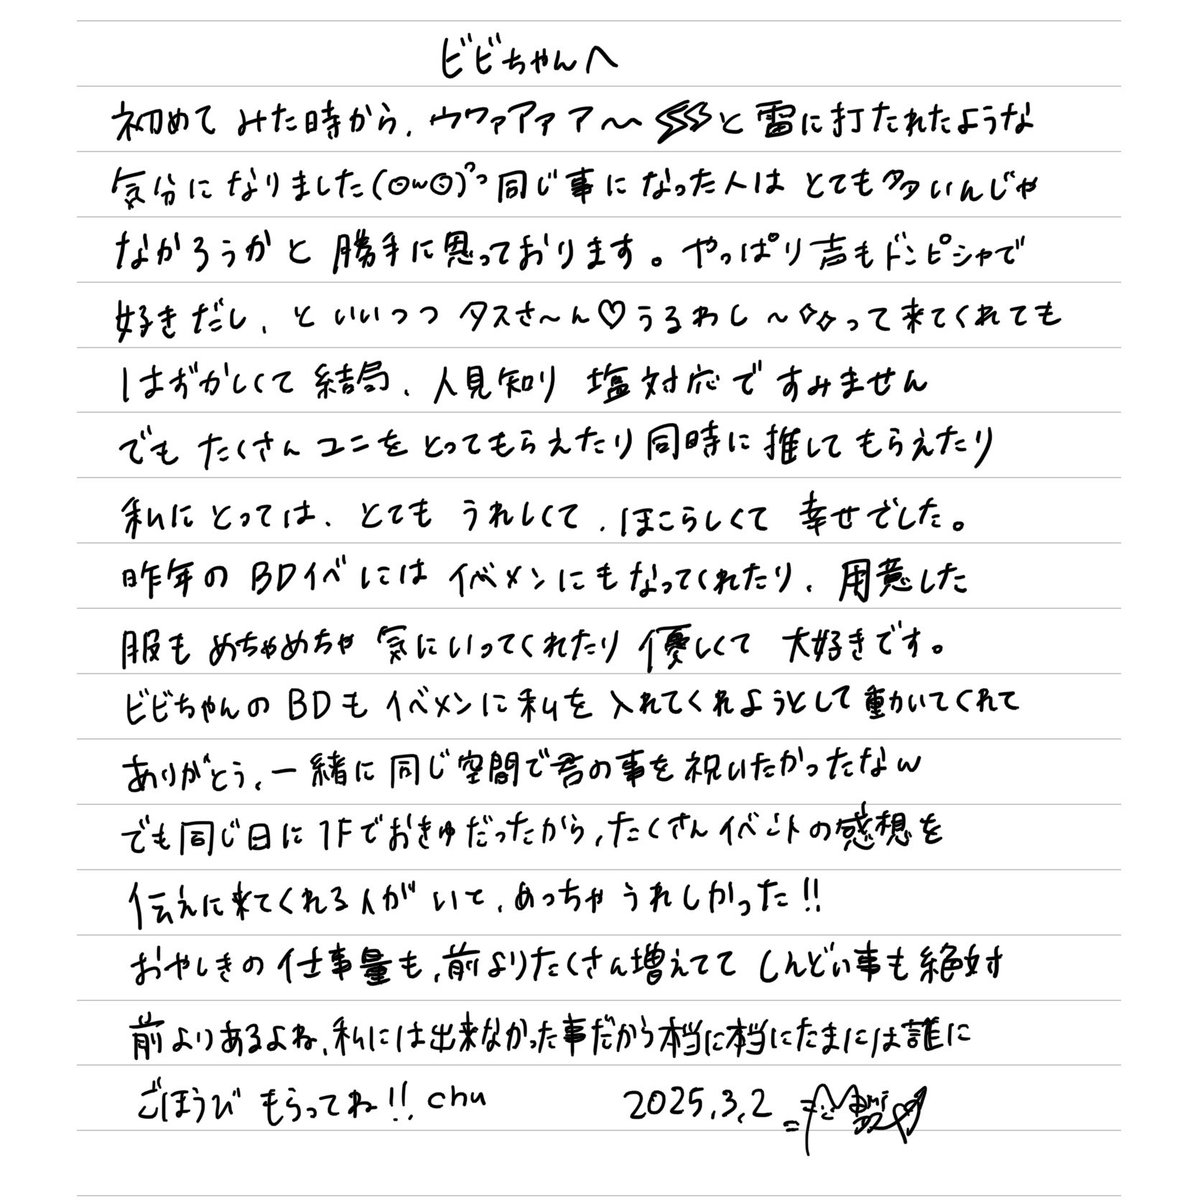 ビビちゃんへ
初めて みた時から、ウワァアァア〜と雷に打たれたような
気分になりました(⊙ω⊙)っ 同じ事になった人は とても多いんじゃ
なかろうかと 勝手に思っております。やっぱり声もドンピシャで
好きだし、といいつつ タスさ〜ん♡うるわし〜✧✧って来てくれても
はずかしくて 結局、人見知り 塩対応ですみません
でも たくさん ユニをとってもらえたり 同時に推してもらえたり
私にとっては、とても うれしくて、ほこらしくて 幸せでした。
昨年の BDイベには イベメンにもなってくれたり、用意した
服も めちゃめちゃ 気にいってくれたり 優しくて 大好きです。
ビビちゃんの BDも イベメンに私を 入れてくれようとして動いてくれて
ありがとう、一緒に 同じ空間で君の事を祝いたかったなw
でも同じ日に 1Fでおきゅだったから、たくさんイベントの感想を
伝えに来てくれる人が いて、めっちゃ うれしかった!!
おやしきの 仕事量も、前よりたくさん増えてて しんどい事も絶対
前よりあるよね、私には出来なかった事だから本当に本当にたまには誰に
ごほうび もらってね!! chu 2025.3.2